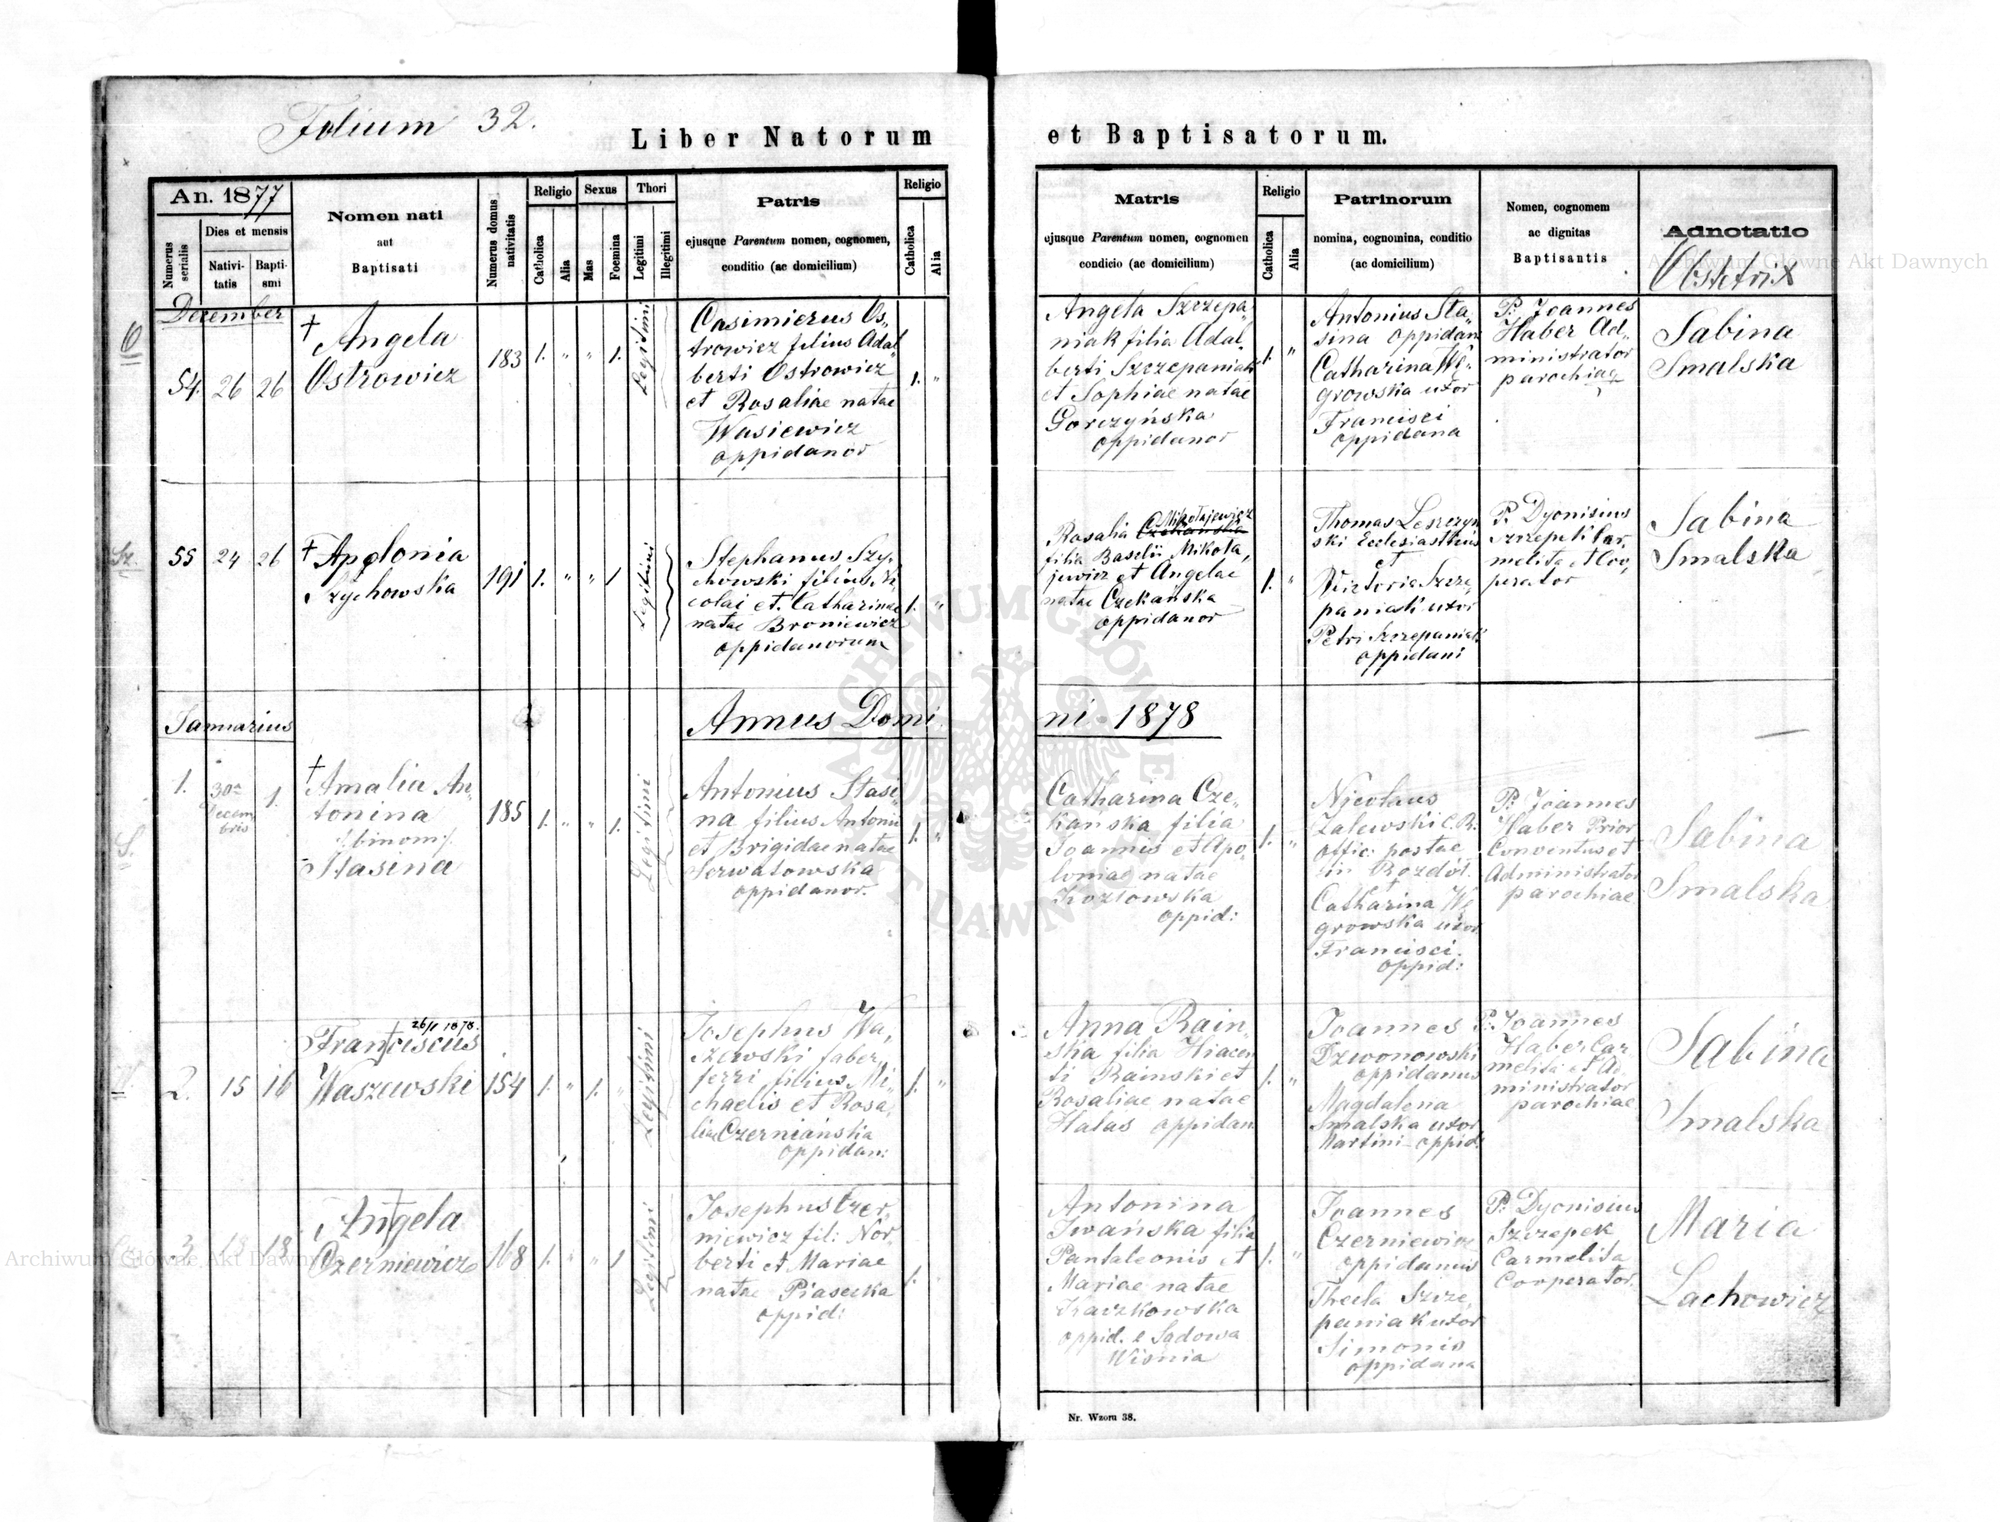 Folium 32.
Liber Natorum et Baptisatorum.
An. 1877
Numerus serialis
Dies et mensis
Nativitatis
Baptismi
Nomen nati
aut
Baptisati
Numerus domus nativitatis
Religio
Catholica
Alia
Sexus
Mas
Foemina
Thori
Legitimi
Illegitimi
Patris
ejusque Parentum nomen, cognomen,
conditio (ac domicilium)
Religio
Catholica
Alia
Matris
ejusque Parentum nomen, cognomen
condicio (ac domicilium)
Religio
Catholica
Alia
Patrinorum
nomina, cognomina, conditio
(ac domicilium)
Nomen, cognomem
ac dignitas
Baptisantis
Adnotatio
Obstetrix
December
54. 26 26
† Angela
Ostrowicz
183 1. " " 1.
Legitimi
Casimierus Os-
trowicz filius Adal
berti Ostrowicz
et Rosaliae natae
Wasiewicz
oppidanor
1. "
Angela Szczepa-
niak filia Adal
berti Szczepaniak
et Sophiae natae
Gorczyńska
oppidanor
1. "
Antonius Sta-
sina oppidan
Catharina Wę-
growska uxor
Francisci
oppidana
P. Joannes
Haber Ad-
ministrator
parochiae
Sabina
Smalska
Sz.
55 24 26
† Apolonia
Szychowska
191 1. " " 1
Legitimi
Stephanus Szy-
chowski filius Ni
colai et Catharinae
natae Broniewicz
oppidanorum
1. "
Mikołajewicz
Rosalia Czekańska
filia Baszlii Mikoła,
jewicz et Angelae
natae Czekańska
oppidanor
1. "
Thomas Leszczyn
ski Ecclesiasticus
et
Victoria Szcze,
paniak uxor
Petri Szczepaniak
oppidani
P. Dyonisius
Szczepek Car,
melita et Coo,
perator
Sabina
Smalska
Januarius
Annus Domi
ni 1878
S.
1. 30a Decem bris 1.
† Amalia An-
tonina
/:binom:/
Stasina
185 1. " " 1.
Legitimi
Antonius Stasi-
na filius Antonii
et Brigidae natae
Serwatowska
oppidanor.
1. "
Catharina Cze-
kańska filia
Joannis et Apo-
loniae natae
Kozłowska
oppid:
1. "
Nicolaus
Zalewski C.R.
offic. postae
in Rozdół.
Catharina Wę
growska uxor
Francisci.
oppid:
P. Joannes
Haber Prior
Conventus et
Administrator
parochiae
Sabina
Smalska
2. 15 16
† 26/1 1878.
Franciscus
Waszewski
154 1. " 1. "
Legitimi
Josephus Wa,
szewski faber,
ferri, filius Mi-
chaelis et Rosa,
liae Czerniańska
oppidan:
1. "
Anna Rain-
ska filia Hiacen
ti Rainski et
Rosaliae natae
Halas oppidan
1. "
Joannes
Dzwonowski
oppidanus
Magdalena
Smalska uxor
Martini oppid:
P. Joannes
Haber Car
melita et Ad
ministrator
parochiae
Sabina
Smalska
3. 18 18
† Angela
Czerniewicz
168 1. " " 1
Legitimi
Josephus Czer-
niewicz fil: Nor-
berti et Mariae
natae Piasecka
oppid:
1.
Antonina
Iwańska filia
Pantaleonis et
Mariae natae
Kaczkowska
oppid. e Sądowa
Wisnia
1. "
Joannes
Czerniewicz
oppidanus
Thecla Szcze,
paniak uxor
Simonis
oppidana
P. Dyonisius
Szczepek
Carmelita
Cooperator.
Maria
Lachowicz
Nr. Wzoru 38.
Archiwum Główne Akt Dawnych
Archiwum Główne Akt Dawnych
ARCHIWUM GŁÓWNE AKT DAWNYCH